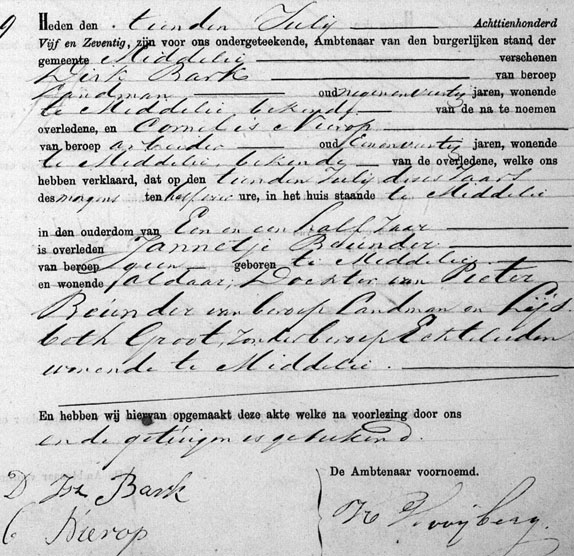 9 Heden den tienden Julij Achttienhonderd
Vijf en Zeventig, zijn voor ons ondergeteekende, Ambtenaar van den burgerlijken stand der
gemeente Middelie verschenen
Dirk Bark van beroep
Landman oud negenenveertig jaren, wonende
te Middelie bekende van de na te noemen
overledene, en Cornelis Nierop
van beroep arbeider oud jaren, wonende
te Middelie, bekende van de overledene, welke ons
hebben verklaard, dat op den tienden Julij dezes Jaars
des morgens ten half vier ure, in het huis staande te Middelie
in den ouderdom van Een en een half Jaar
is overleden Jannetje Beunder
van beroep geen geboren te Middelie
en wonende aldaar, Dochter van Pieter
Beúnder van beroep Landman en Lijs-
beth Groot, zonder beroep Echtelieden
wonende te Middelie.
En hebben wij hiervan opgemaakt deze akte welke na voorlezing door ons
en de getuigen is geteekend.
De Ambtenaar voornoemd.
D Bark
C Nierop